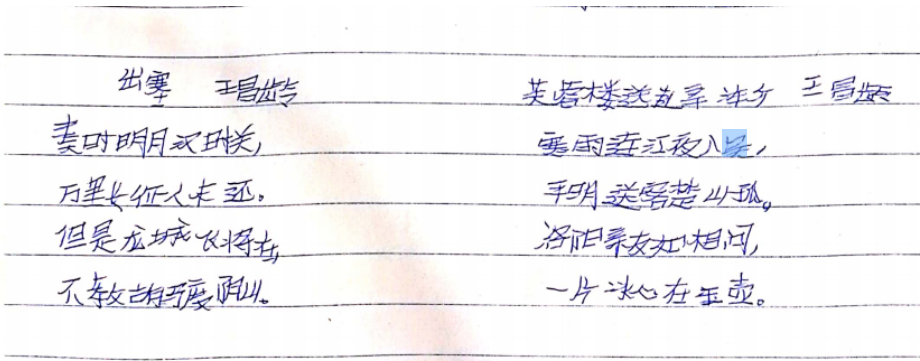 出塞 王昌龄
秦时明月汉时关,
万里长征人未还.
但是龙城飞将在,
不教胡马度阴山.
芙蓉楼送辛渐 王昌龄
寒雨连江夜入吴,
平明送客楚山孤。
洛阳亲友如相问,
一片冰心在玉壶。